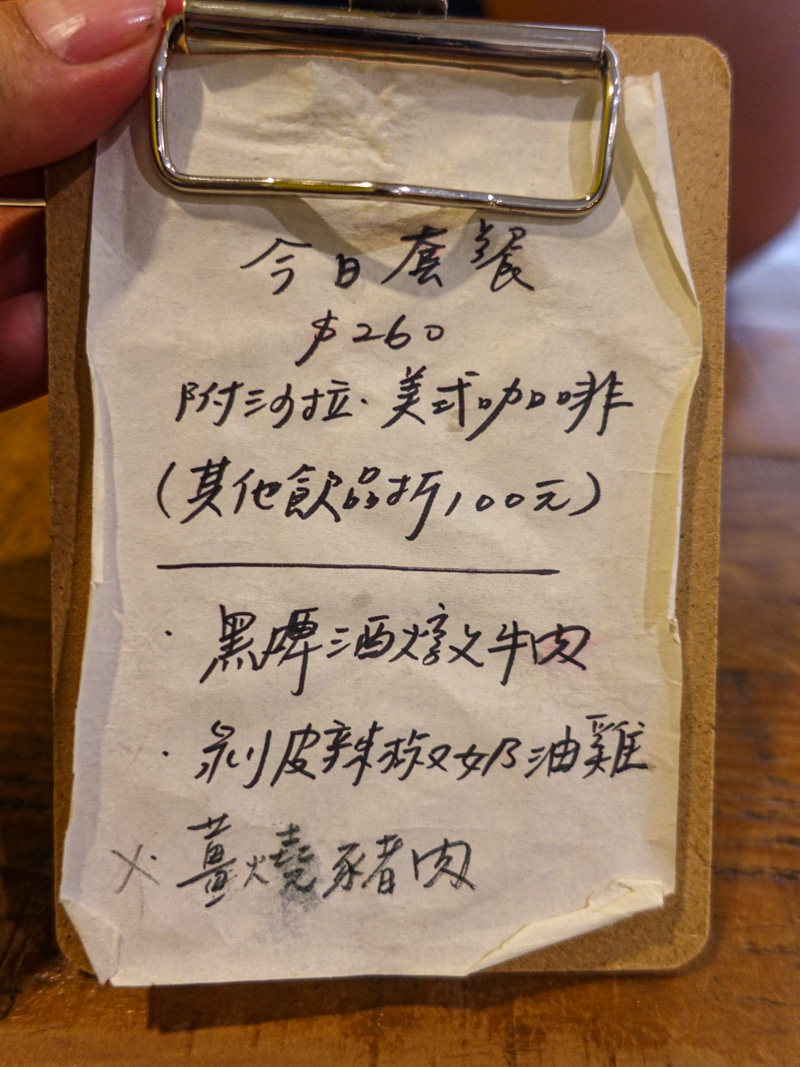 今日套餐
$260
附沙拉·美式咖啡
(其他飲品折100元)
·黑啤酒燉牛肉
·剝皮辣椒奶油雞
×·薑燒豬肉